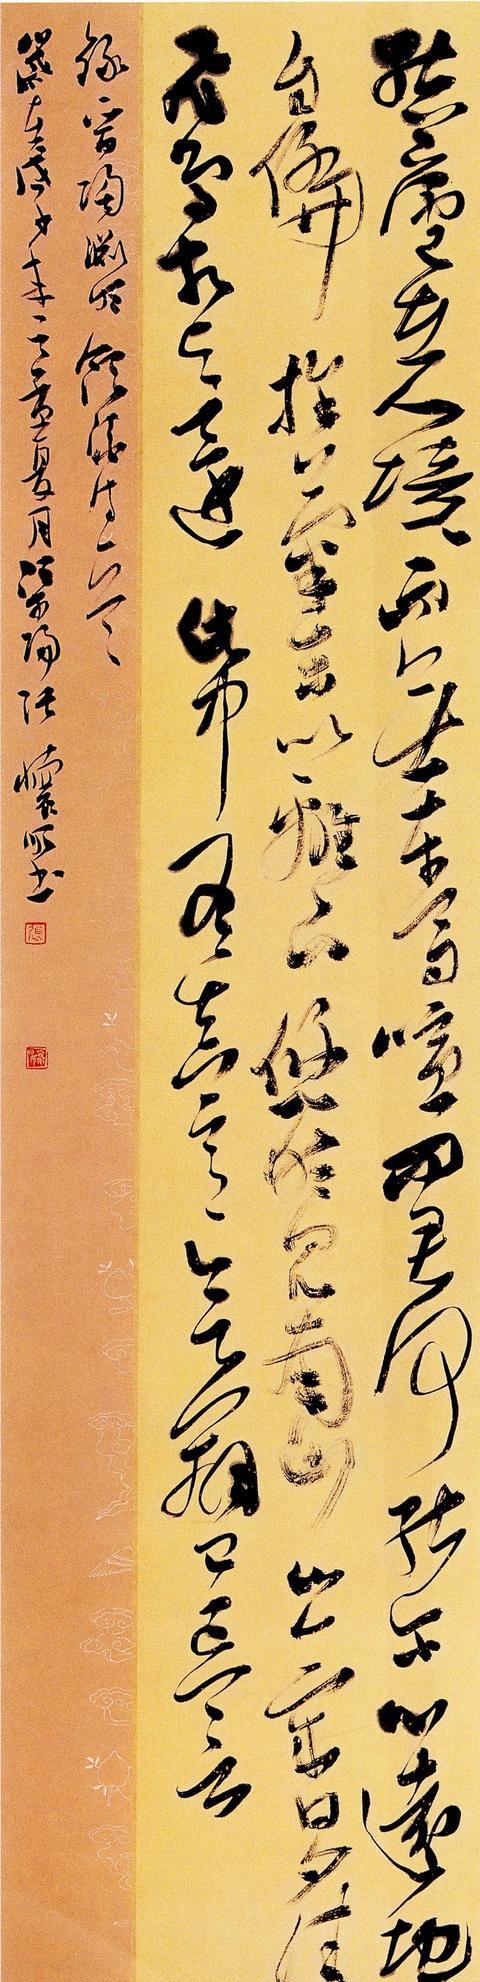 結廬在人境而無車馬喧問君何能尔心遠地
自偏採菊東籬下悠然見南山山氣日夕佳
飛鳥相与還此中有真意欲辨已忘言
錄晉陶淵明飲酒詩一首
歲在未之夏月陽張懷書
張